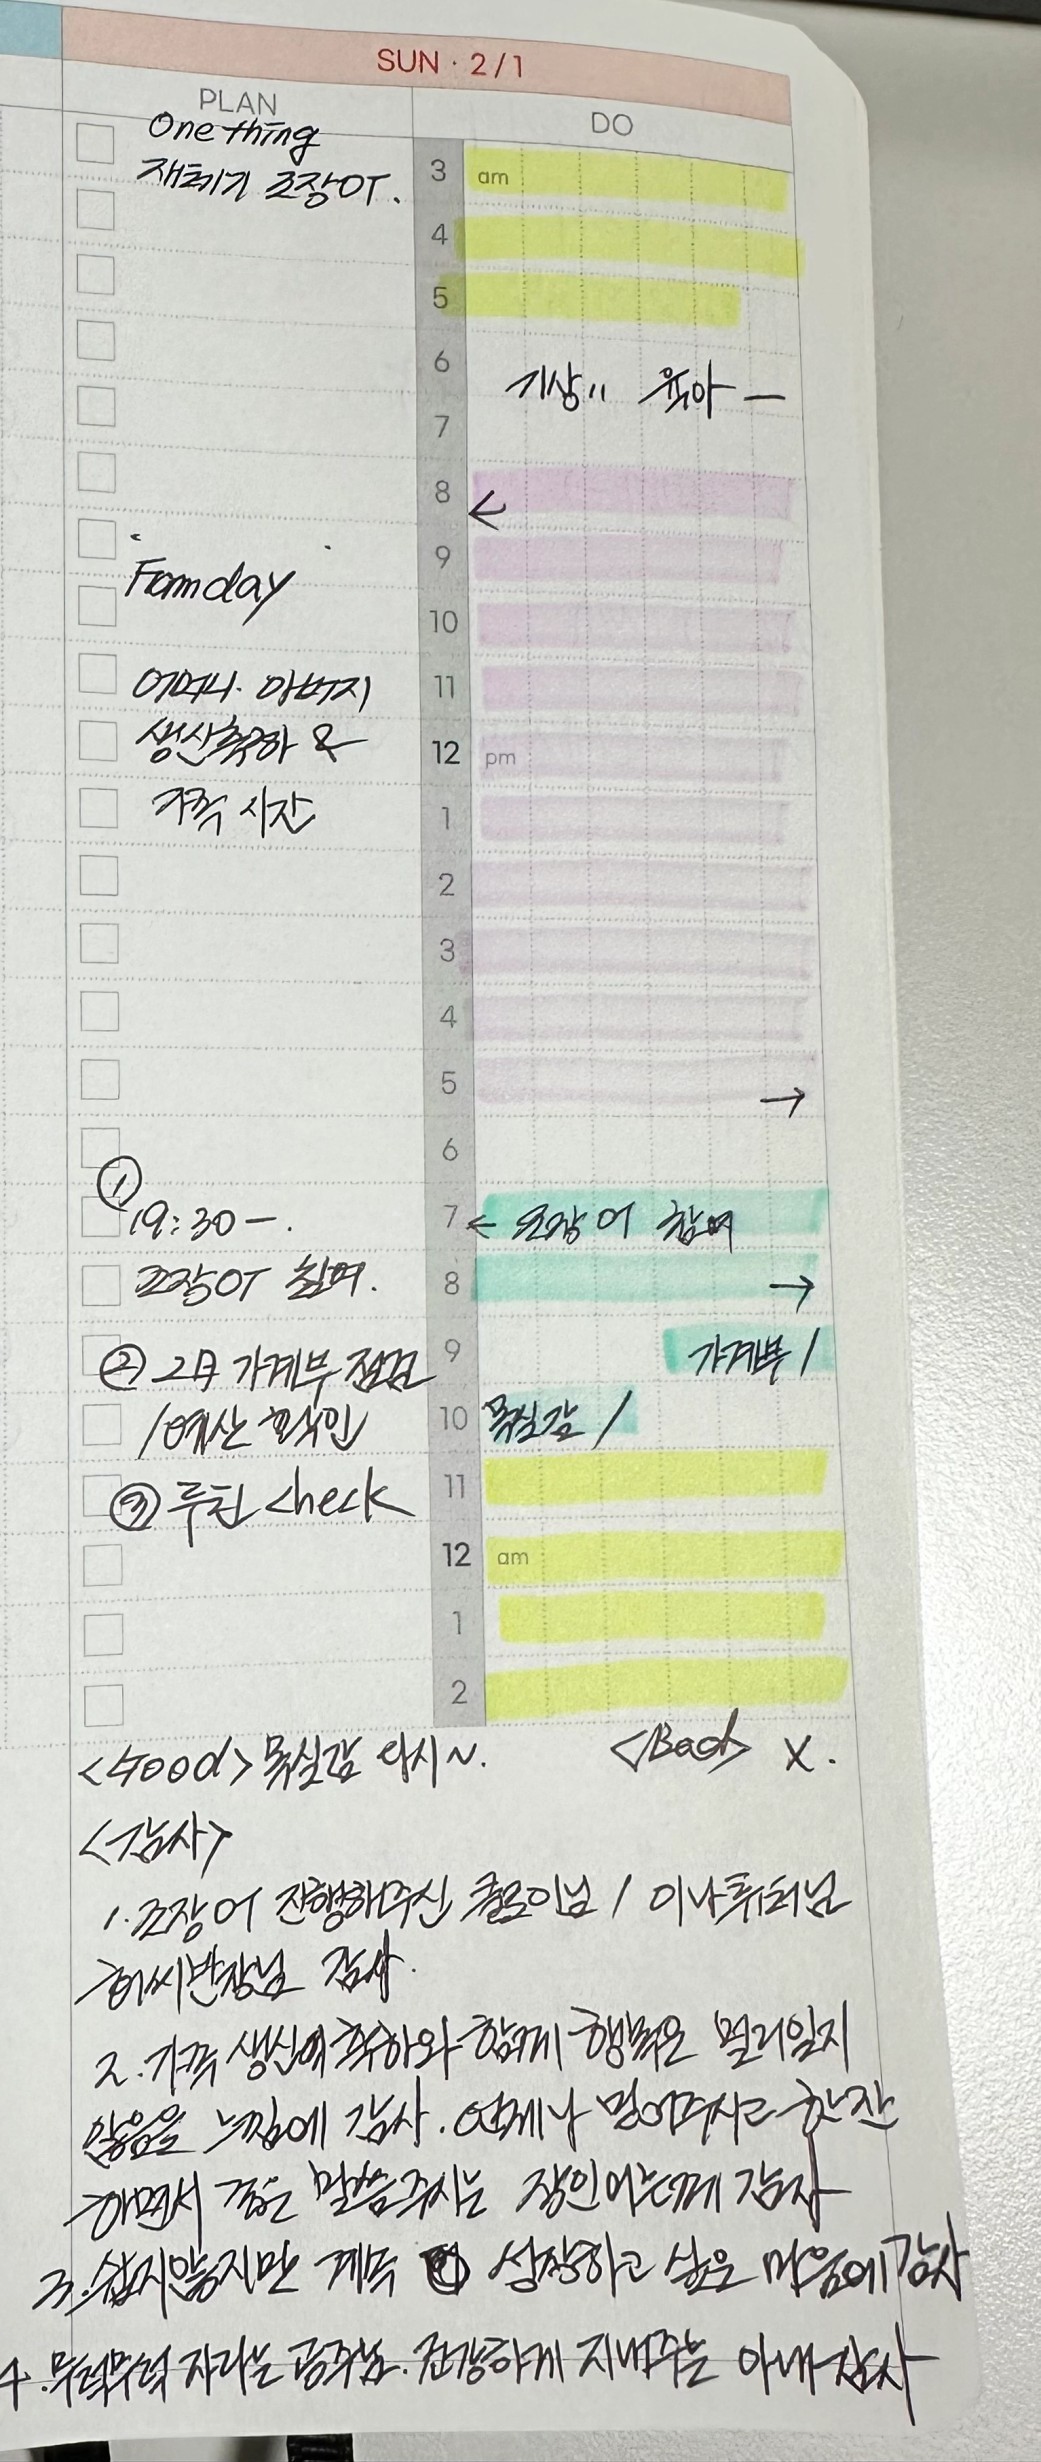 SUN · 2/1
PLAN
DO
One thing
재테기 조장OT.
3 am
4
5
6
기상!! 육아 —
7
8 ←
9
Famday
10
어머니. 아버지
11
생신축하 &
12 pm
가족 시간
1
2
3
4
5 →
6
①
19:30 —.
7 ← 조장 OT 참여
조장OT 참여.
8 →
② 2月 가계부 점검
9 가계부 /
/예산 확인
10 목실감 /
③ 루틴 check
11
12 am
1
2
<Good> 목실감 다시~.
<Bad> X.
<감사>
1. 조장 OT 진행해주신 클로이님 / 이나튜터님
허씨반장님 감사.
2. 가족 생신에 축하와 함께 행복은 멀리있지
않음을 느낌에 감사. 언제나 믿어주시고 한잔
하면서 좋은 말씀주시는 장인어른께 감사
3. 쉽지않지만 계속 성장하고 싶은 마음에 감사
4. 무럭무럭 자라는 공주님. 건강하게 지내주는 아내 감사